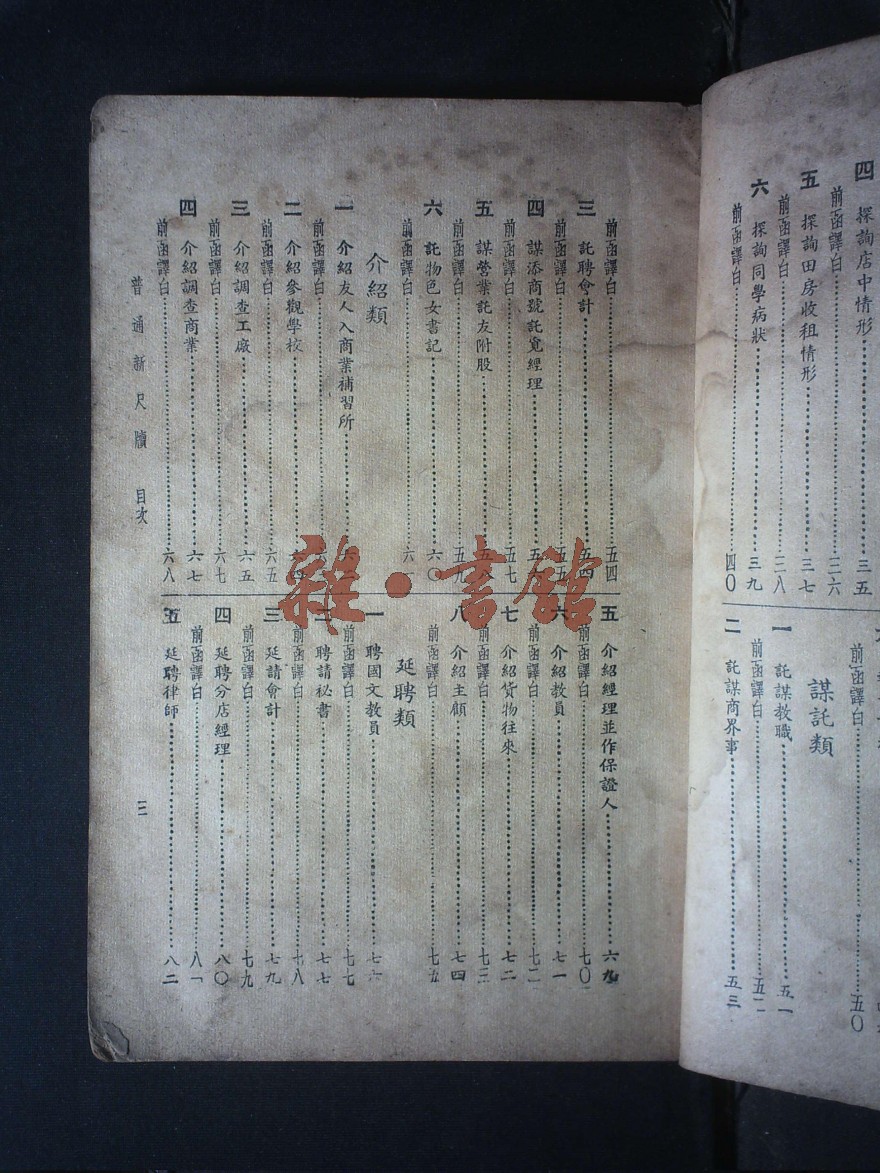 四 探詢店中情形 三五
前函譯白 三六
五 探詢田房收租情形 三七
前函譯白 三八
六 探詢同學病狀 三九
前函譯白 四〇
前函譯白 五〇
謀託類
一 託謀教職 五一
前函譯白 五二
二 託謀商界事 五三
前函譯白 五四
三 託聘會計 五四
前函譯白 五五
四 謀添商號託覓經理
前函譯白 五七
五 謀營業託友附股 五八
前函譯白 五九
六 託物色女書記 六〇
前函譯白
介紹類
一 介紹友人入商業補習所
前函譯白
二 介紹參觀學校 六四
前函譯白 六五
三 介紹調查工廠 六五
前函譯白 六七
四 介紹調查商業 六七
前函譯白 六八
五 介紹經理並作保證人 六九
前函譯白 七〇
六 介紹教員 七一
前函譯白 七二
七 介紹貨物往來 七二
前函譯白 七三
八 介紹主顧 七四
前函譯白 七五
延聘類
一 聘國文教員 七六
前函譯白 七七
二 聘請祕書 七七
前函譯白 七八
三 延請會計 七九
前函譯白 七九
四 延聘分店經理 八〇
前函譯白 八一
五 延聘律師 八二
普通新尺牘 目次 三
雜·書館